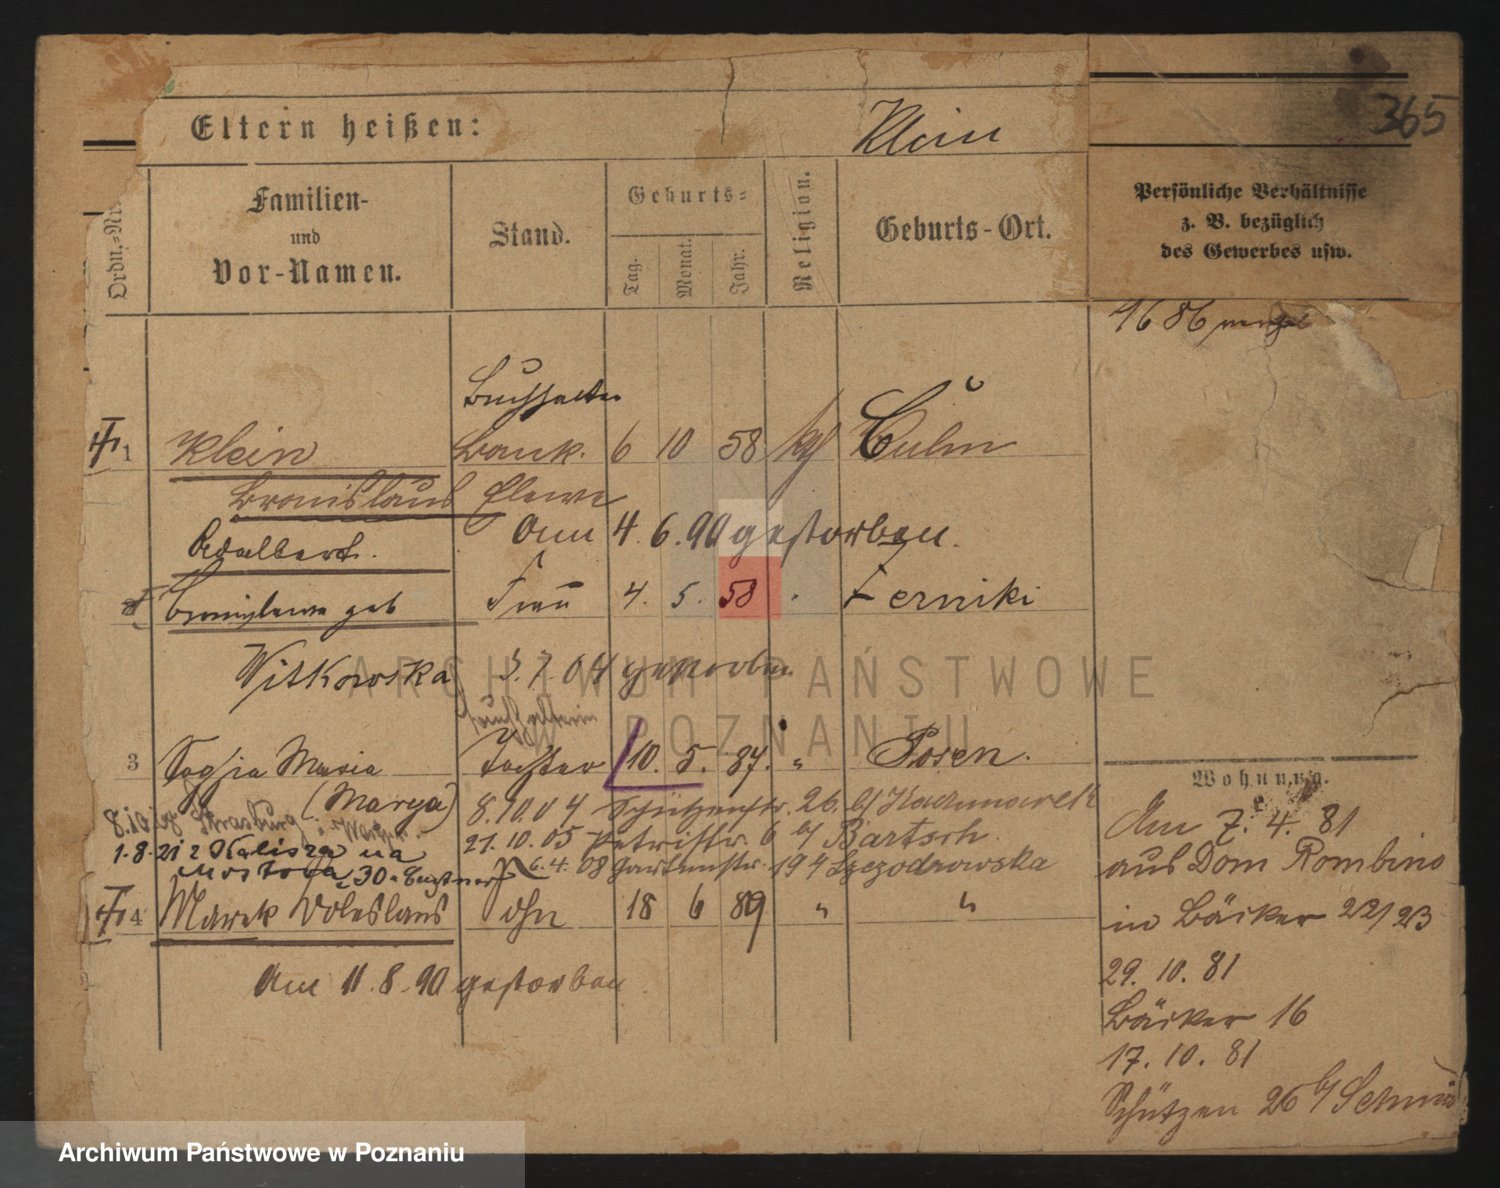 365
Eltern heißen: Klein
Ordn.-Nr.
Familien-
und
Vor-Namen.
Stand.
Geburts-
Tag.
Monat.
Jahr.
Religion.
Geburts-Ort.
Persönliche Verhältnisse
z. B. bezüglich
des Gewerbes usw.
1686
Buchhalter
1 Klein Bank. 6 10 58 Culm
Bronislaus Eleve
Am 4. 6. 90 gestorben.
Adalbert.
geb Frau 4. 5. 58 Zerniki
Witkowska 3. 7. 04 gestorben
Buchhalterin
3 Sofia Maria Tochter 10. 5. 87. " Posen.
(Marya) 8. 10. 04 Schützenstr. 26. b/ Kaczmarek
Strasburg i. Westpr.
21. 10. 05 Petristr. 6 b/ Bartsch.
1.8.21 z Kalisza na
6. 4. 08 Gartenstr. 19 4 Szczodrowska
Mostowa 30
4 Marek Boleslaus Sohn 18 6 89 " "
Am 11. 8. 90 gestorben
Wohnung.
Am 7. 4. 81
aus Dom Rombino
in Bäcker 22/23
29. 10. 81
Bäcker 16
17. 10. 81
Schützen 26 b/
ARCHIWUM PAŃSTWOWE
W POZNANIU
Archiwum Państwowe w Poznaniu